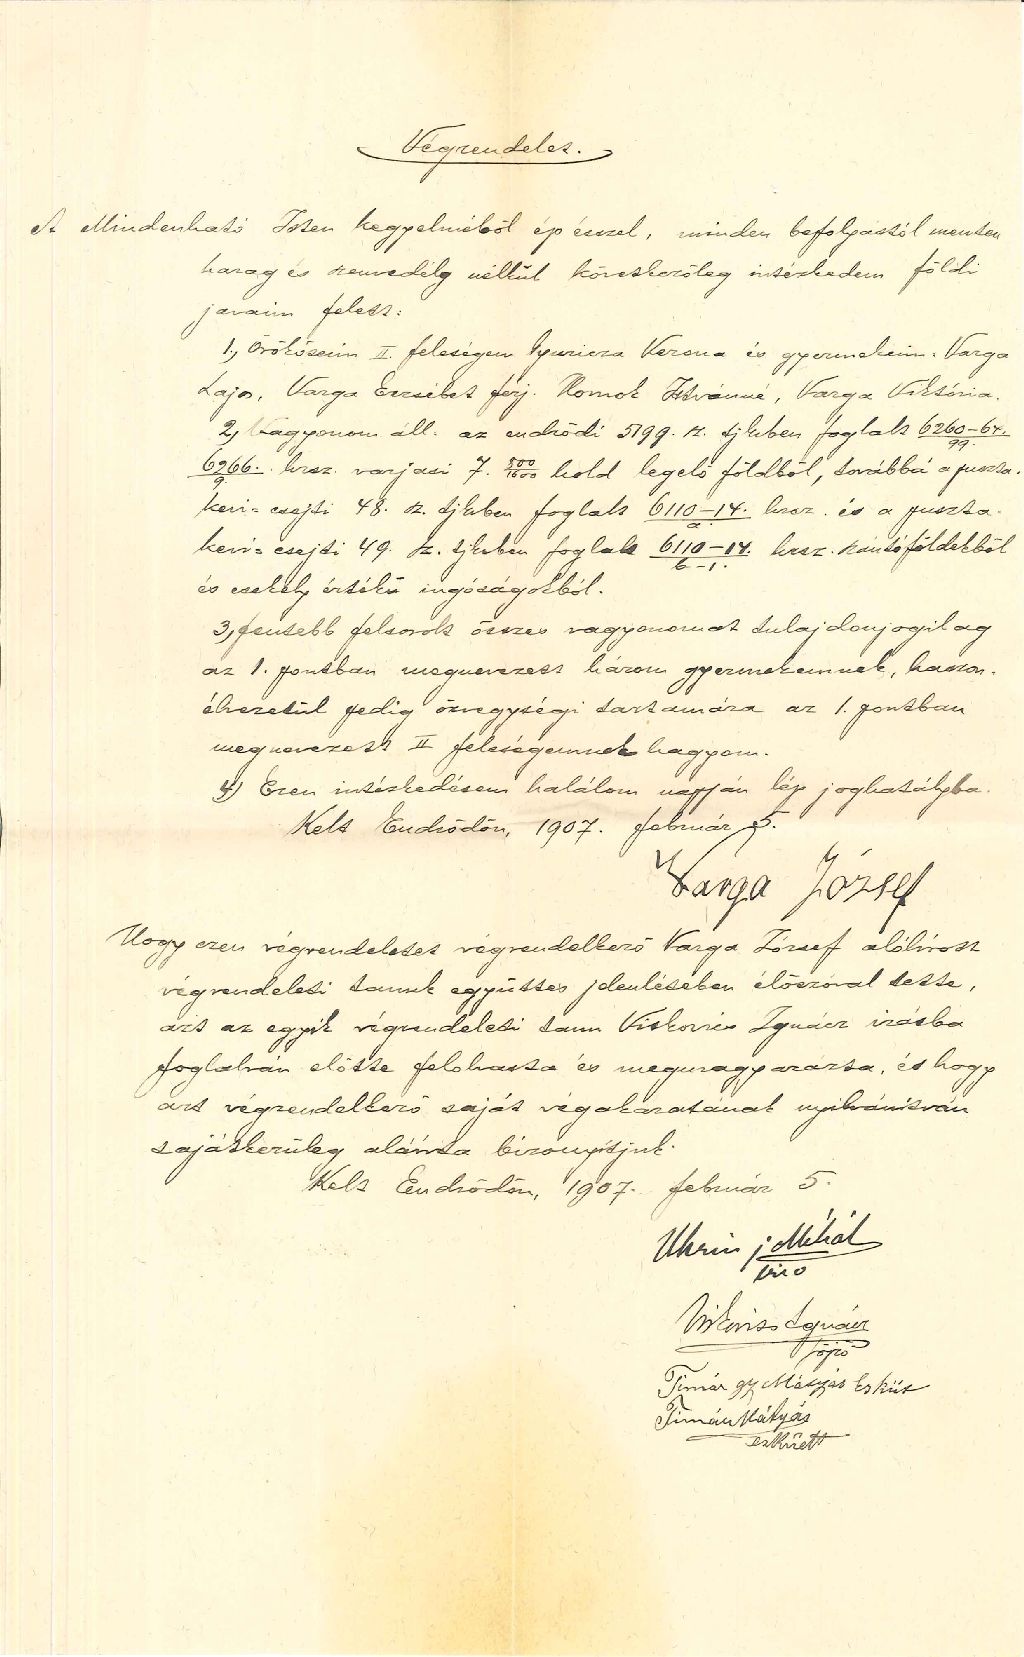 Végrendelet.
A Mindenható Isten kegyelméből ép ésszel, minden befolyástól menten
harag és szenvedély nélkül következőleg intézkedem földi
javaim felett:
1., Örököseim II. feleségem Gyuricza Verona és gyermekeim: Varga
Lajos, Varga Erzsébet férj. Homok Istvánné, Varga Viktória.
2., Vagyonom áll: az endrődi 5199. sz. tjkvben foglalt 6260-64./99.
6266./9. hrsz. varjasi 7. 800/1600 hold legelő földből, továbbá a puszta-
keri-csejti 48. sz. tjkvben foglalt 6110-14./a. hrsz. és a puszta-
keri-csejti 49. sz. tjkvben foglalt 6110-14./b-1. hrsz. szántóföldekből
és csekély értékű ingóságokból.
3., fentebb felsorolt összes vagyonomat tulajdonjogilag
az 1. pontban megnevezett három gyermekemnek, haszon-
élvezetül pedig özvegységi tartamára az 1. pontban
megnevezett II feleségemnek hagyom.
4) Ezen intézkedésem halálom napján lép joghatályba.
Kelt Endrődön, 1907. február 5.
Varga József
Hogy ezen végrendeletet végrendelkező Varga József alólírott
végrendeleti tanuk együttes jelenlétében élőszóval tette,
azt az egyik végrendeleti tanu Viskovics Ignácz irásba
foglalván előtte felolvasta és megmagyarázta, és hogy
azt végrendelkező saját végakaratának nyilvánitván
sajátkezüleg aláirta bizonyitjuk.
Kelt Endrődön, 1907. február 5.
Uhrin j Mihál
biró
Viskovics Ignácz
főjző
Timár gy Mátyás Esküt
Timár Mátyás
esküett